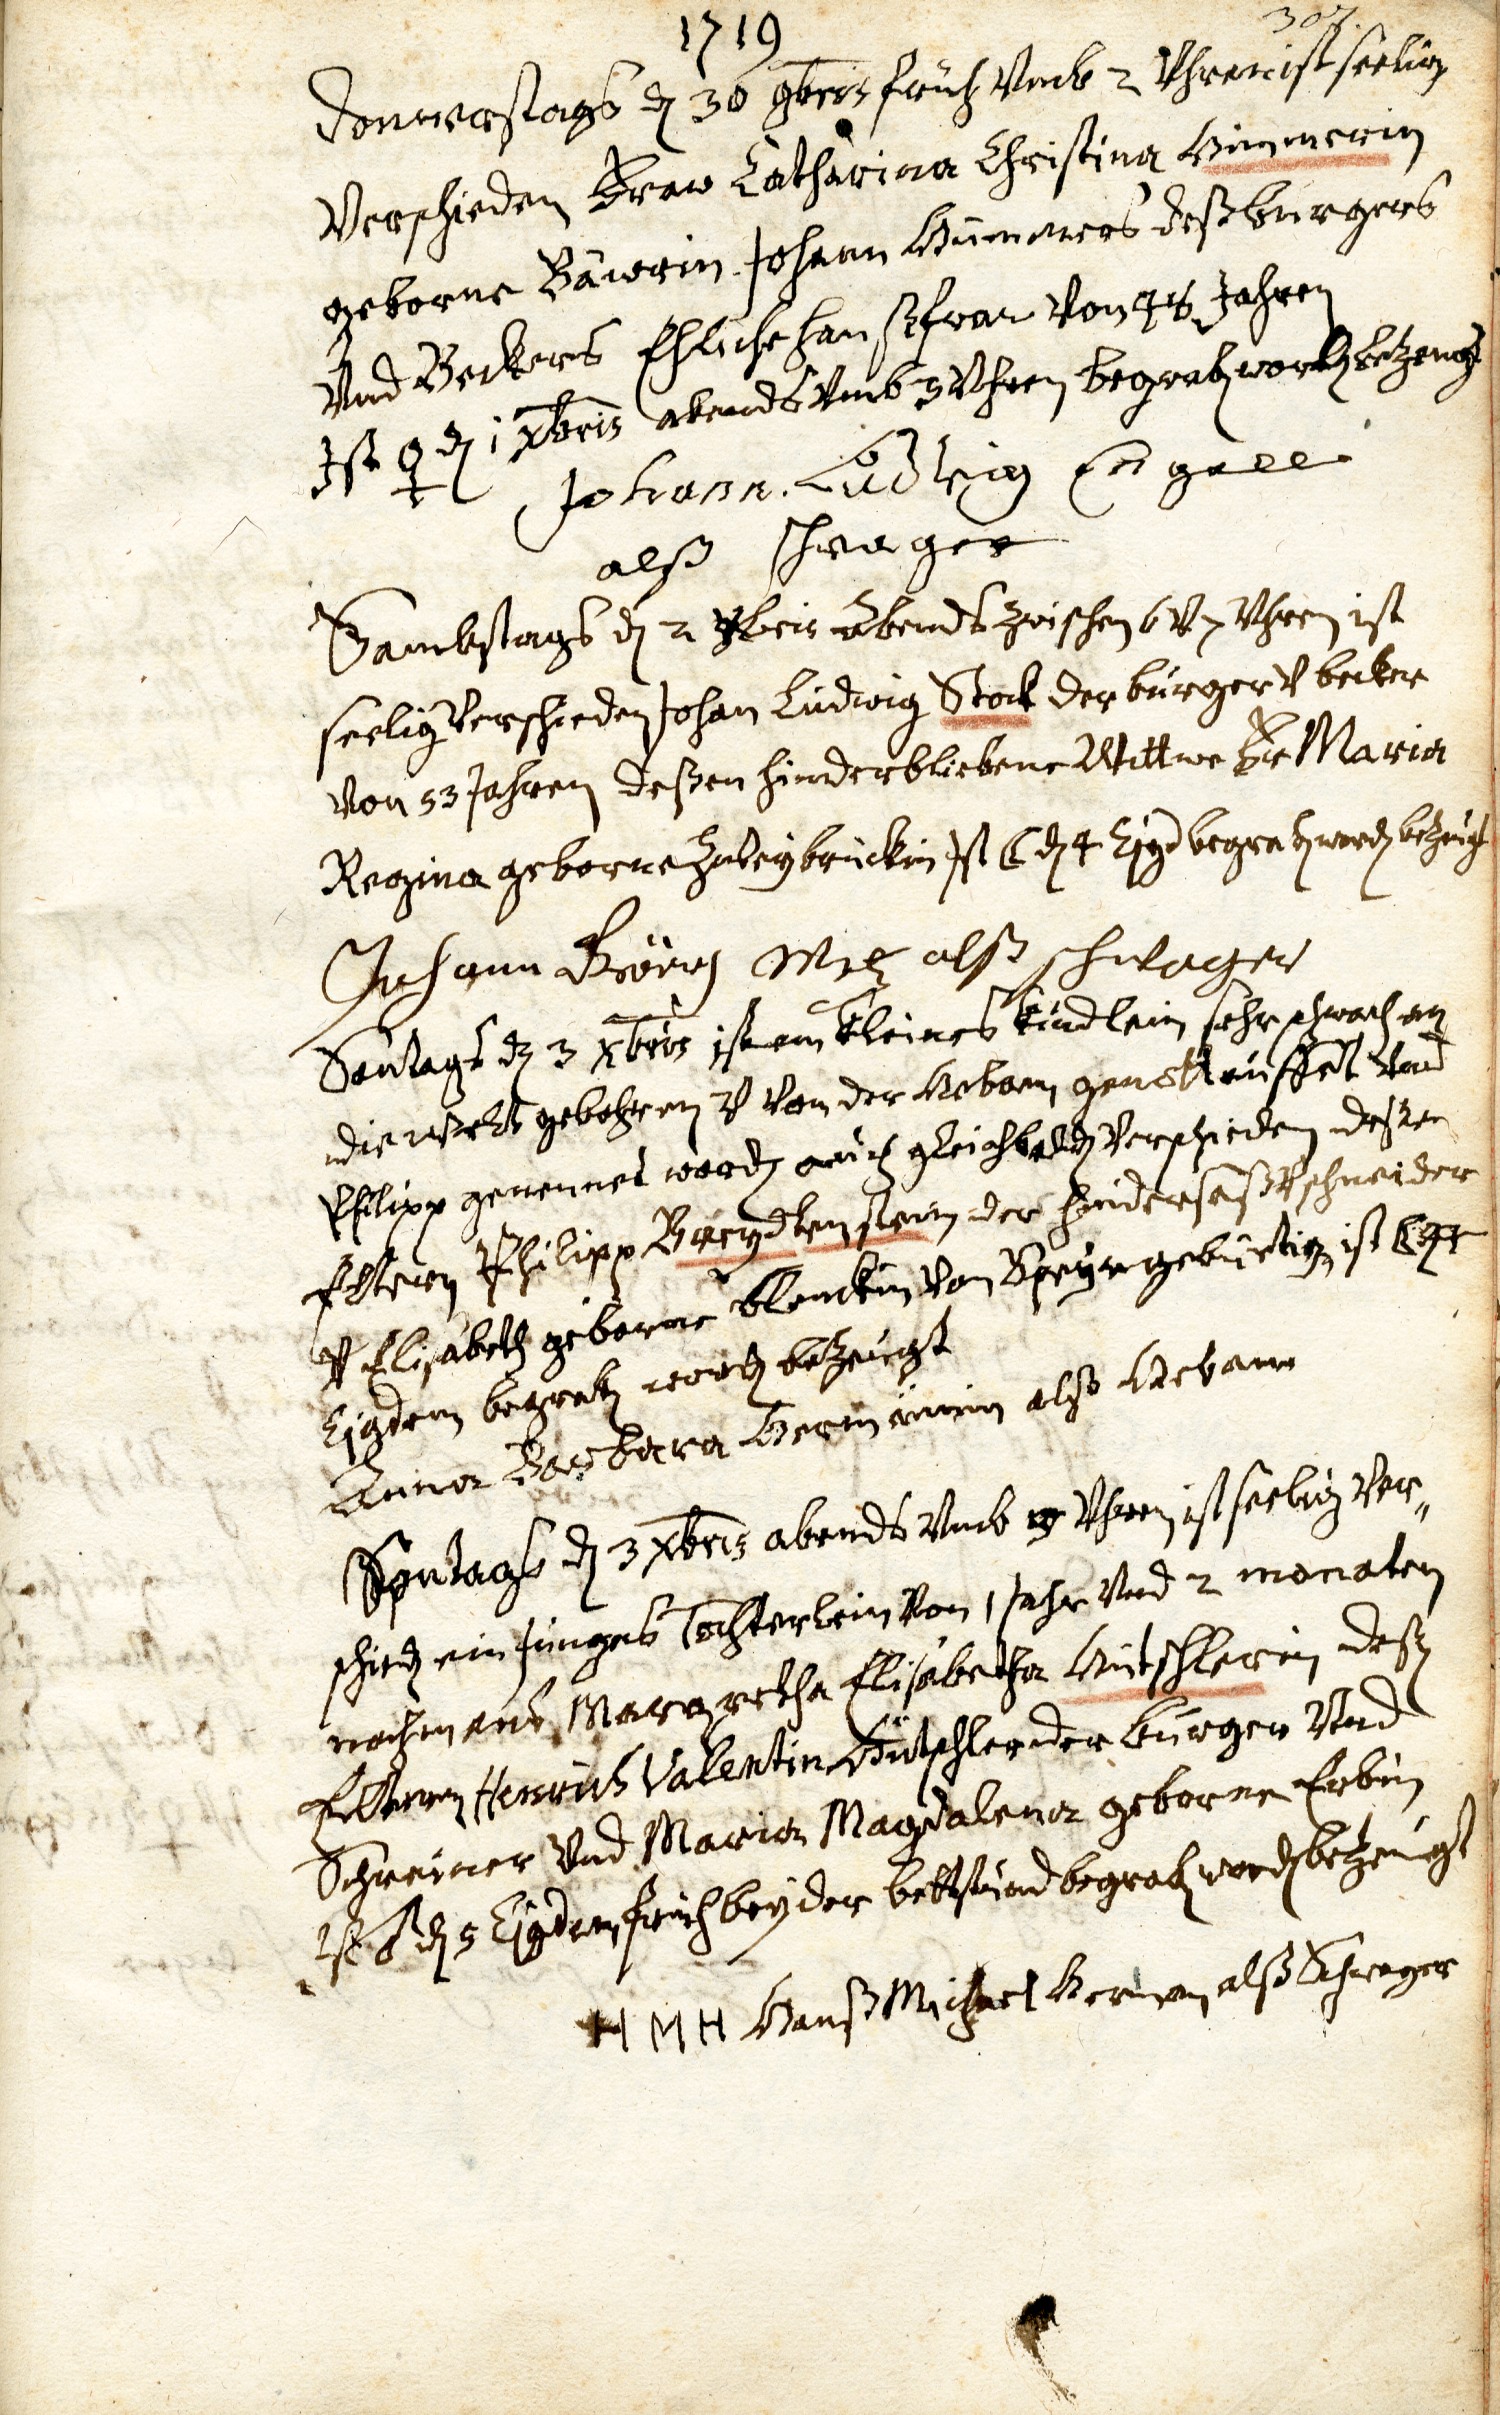 1719
307.
Donnerstags dҙ 30 9bris früh umb 2 Uhren ist seelig
Verschieden Fraw Catharina Christina
geborne Bäurin Johann deß burgers
Und Beckers Ehliche haußfrau Von 48 Jahren
Ist ♀ dҙ 1 Xbris abends umb 3 Uhren begrabҙ wordҙ bezeugt
Johann. Ludwig Engell
alß schwager
Sambstags dҙ 2 Xbris Abends zwischen 6 V 7 Uhren ist
seelig Verschieden Johan Ludwig Stock der burger V becker
Von 53 Jahren deßen hinderbliebene Wittwe Fr Maria
Regina geborne Zweybrückin Ist ☾ dҙ 4 Ejꝰd begrabҙ wordҙ bezeugt
Johann Görg alß schwager
Sontags dҙ 3 Xbris ist ein kleines kindlein sehr schwach an
die welt gebohren V von der Hebam genottauffet Und
Philipp genennet wordҙ auch gleich baldҙ Verschieden deßen
Elteren Philipp der hindersaß V schneider
V Elisabeth geborne Von Speyer gebürtig ist ☾ dҙ 4
Ejꝰdem begrabҙ wordҙ bezeugt
Anna Barbara Hermännin alß Hebam
Sontags dҙ 3 Xbris abends umb 9 Uhren ist seelig Ver„
schiedҙ ein Junges Töchterlein Von 1 Jahr Und 2 monaten
nahmens Margretha Elisabetha Hütschlerin deßҙ
Elteren Henrich Valentin Hütschler der burger Und
Schreiner Und Maria Magdalena geborne Erbin
Ist ♂ dҙ 5 Ejꝰdem früh bey der bettstund begrabҙ wordҙ bezeugt
HMH Hanß Michael Herman alß Schwager